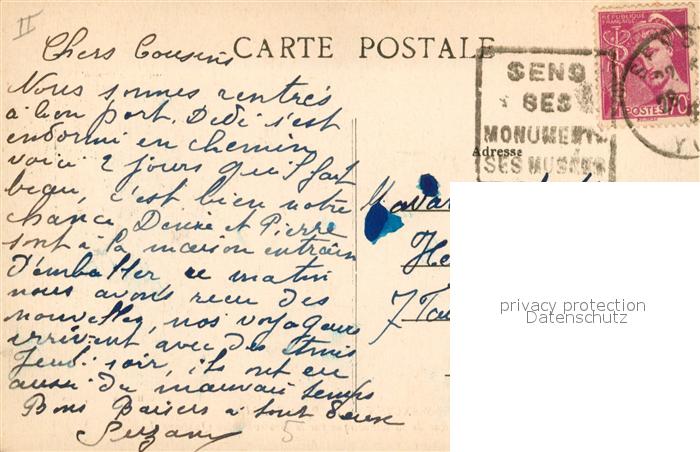 II
Chers Cousins
CARTE POSTALE
RÉPUBLIQUE FRANÇAISE
POSTES 70c
SENS
SES
MONUMENTS
SES MUSÉES
Adresse
Nous sommes rentrés
à bon port. Dédé s'est
endormi en chemin
voici 2 jours qu'il fait
beau, c'est bien notre
chance Denise et Pierre
sont à la maison entrain
d'emballer ce matin
nous avons reçu des
nouvelles, nos voyageurs
arrivent avec des Amis
Jeudi soir, ils ont eu
aussi du mauvais temps
Bons Baisers à tout deux
Suzanne
5
7
privacy protection
Datenschutz